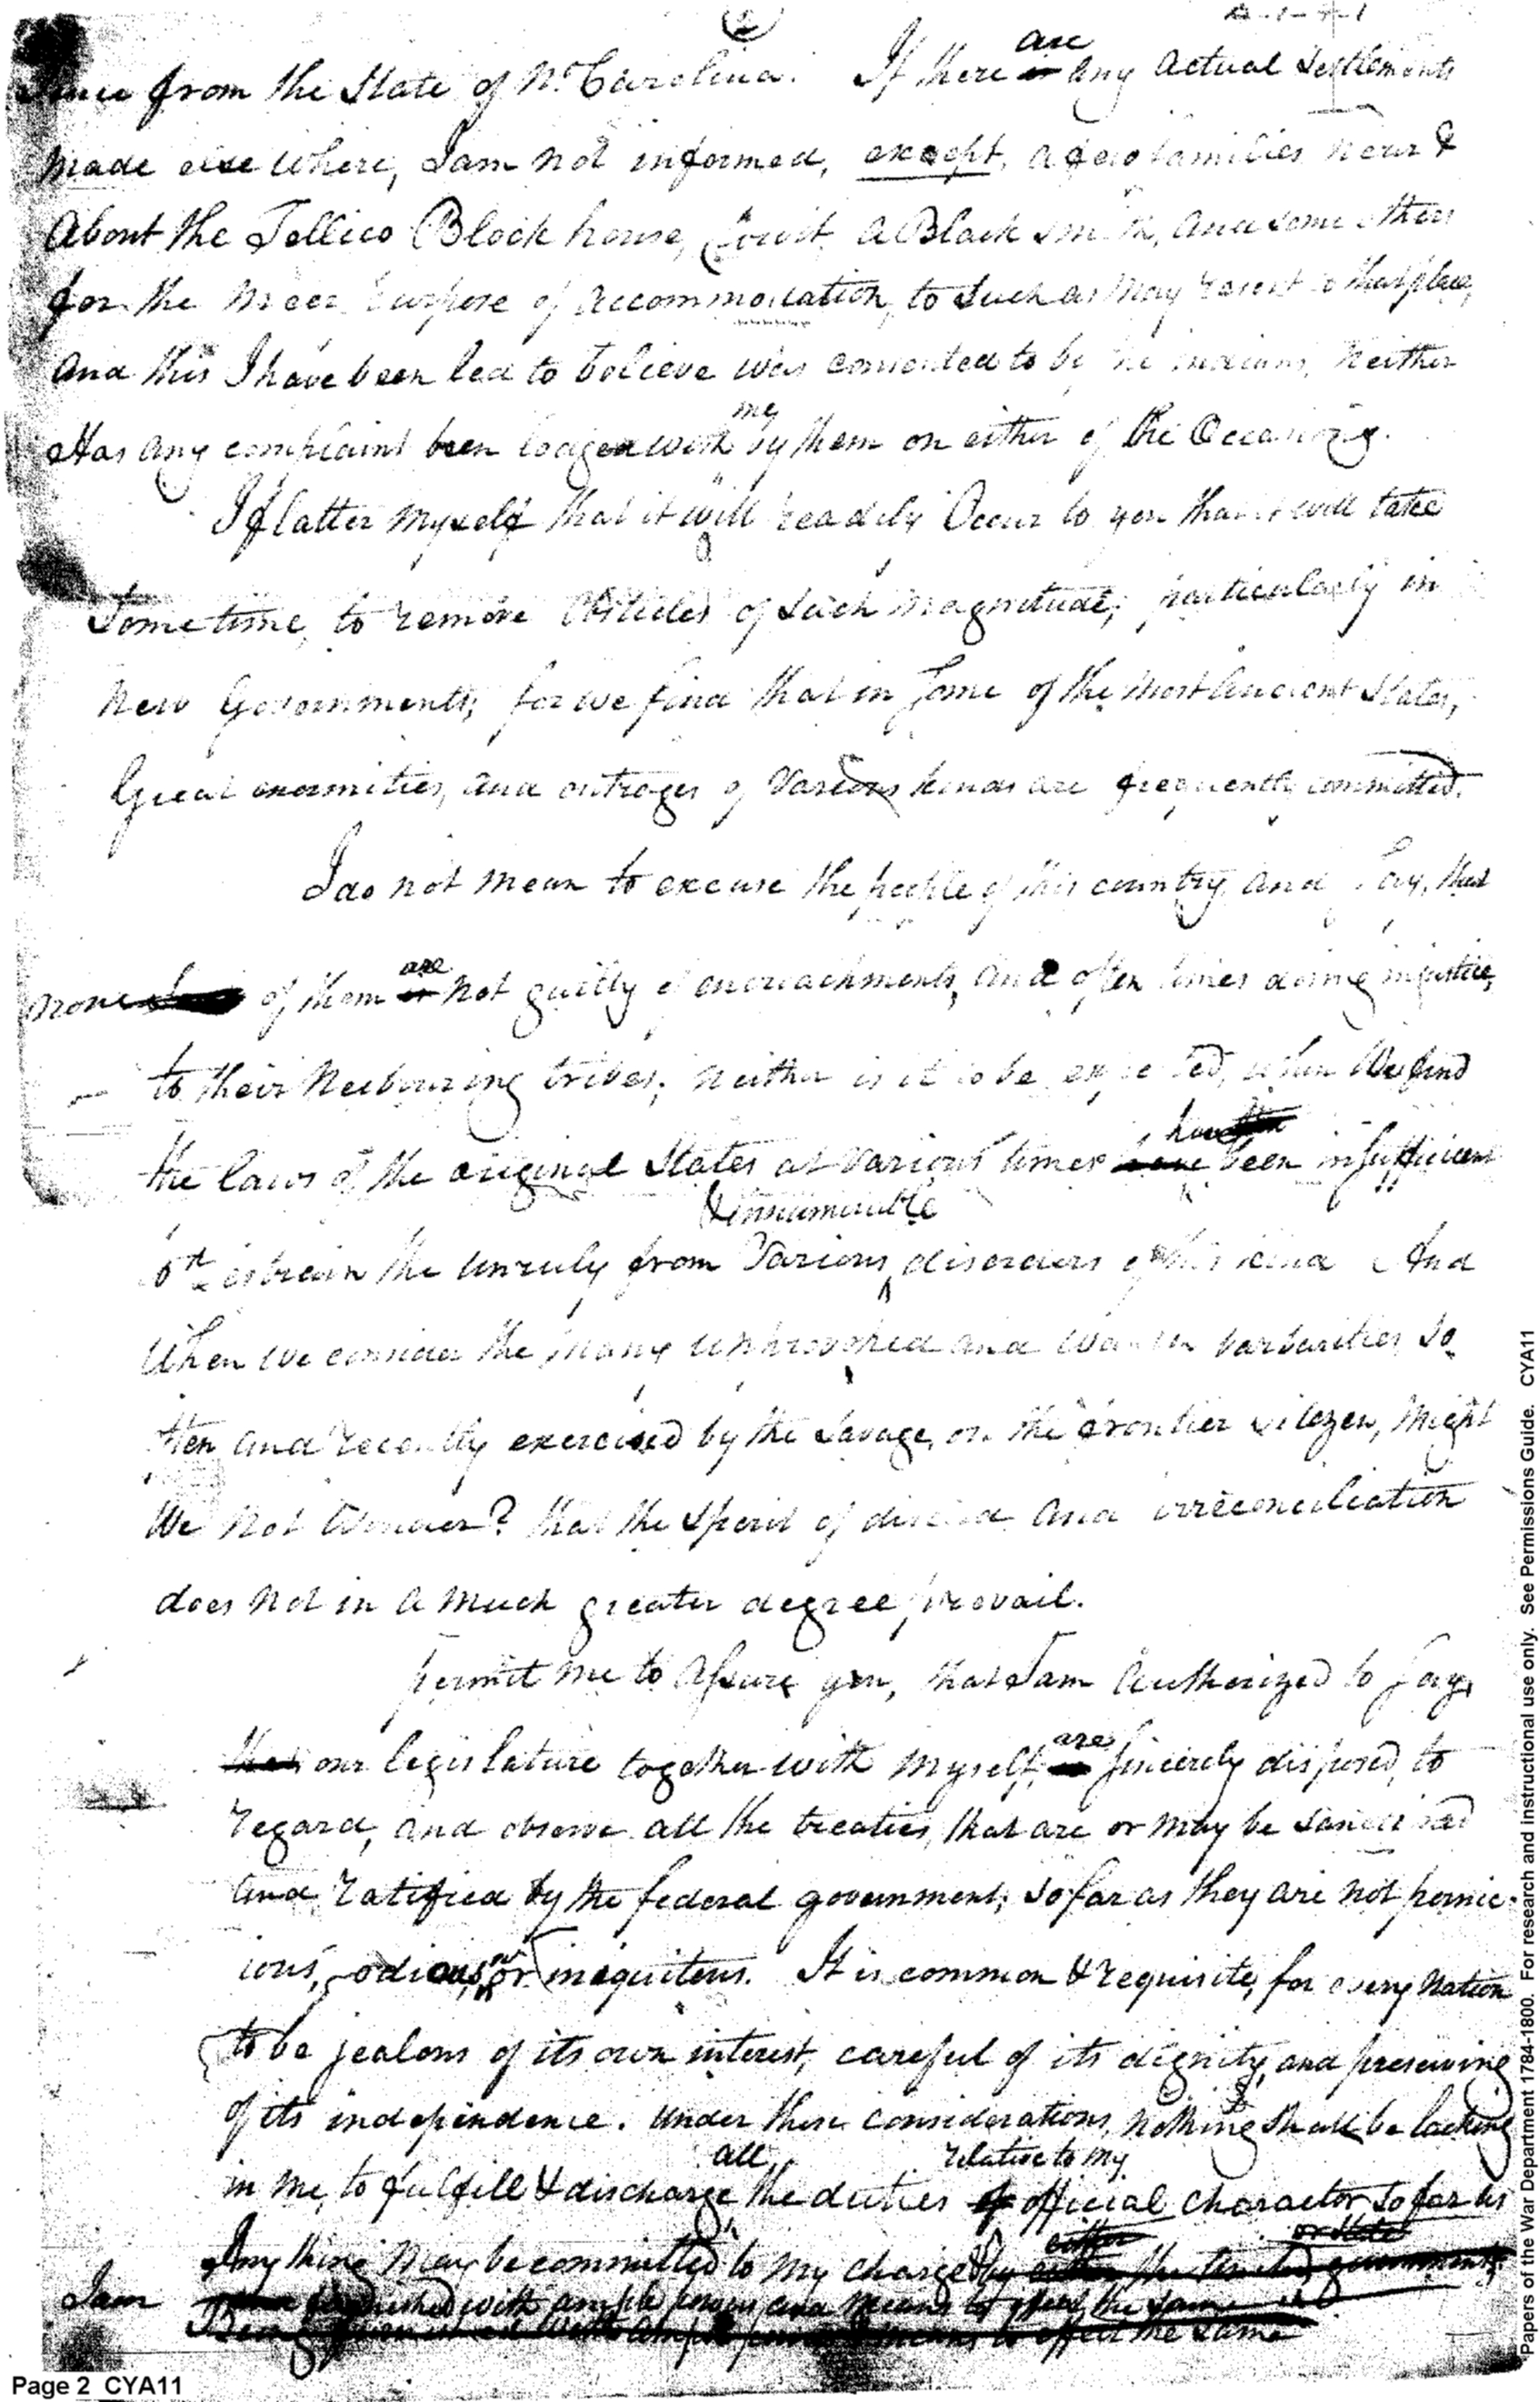 (2)
since from the State of No. Carolina. If there are is any actual Settlements
made else where, I am not informed, except, a few families near &
about the Tellico Block house, (towit, a Black smith, and some others
for the meer purpose of accommodation, to such as may resort to that place,
and this I have been led to believe was consented to by the indians, neither
Has any complaint been lodged with me by them on either of the Occasions.
I flatter myself that it will readily Occur to you that it will take
Some time, to remove Obsticles of such magnitude; particularly in
new Governments; for we find that in some of the most Ancient States,
Great enormities, and outrages of Various kinds are frequently committed.
I do not mean to excuse the people of this country, and say, that
none of them are is not guilty of encroachments, and often times doing injustice,
to their Neibouring tribes; neither is it to be expected, when We find
the laws of the original States at various times have been insufficient
to restrain the unruly from Various & innumerable disorders of this kind And
When we consider the many unprovoked and wanton barbarities so
often and recently exercised by the Savage, on the frontier citezen, might
We not Wonder? that the spirit of discord and irreconciliation
does not in a much greater degree prevail.
permit me to assure you, that I am Authorized to say,
that our legislature together with myself, are is sincerely disposed, to
regard, and observe all the treaties, that are or may be sanctioned
and ratified by the federal government; so far as they are not pernic-
ious, odious, or iniquitous. It is common & requisite, for every Nation
to be jealous of its own interest, careful of its dignity, and preserving
of its independence. under these considerations, nothing shall be lacking
in me, to fulfill & discharge all the duties of relative to my official charactor so far as
Any thing may be committed to my charge by either the United or State governments
I am furnished with ample powers and means to effect the same
Being with ample powers & means to effect the same
Page 2 CYA11
Papers of the War Department 1784-1800. For research and instructional use only. See Permissions Guide. CYA11